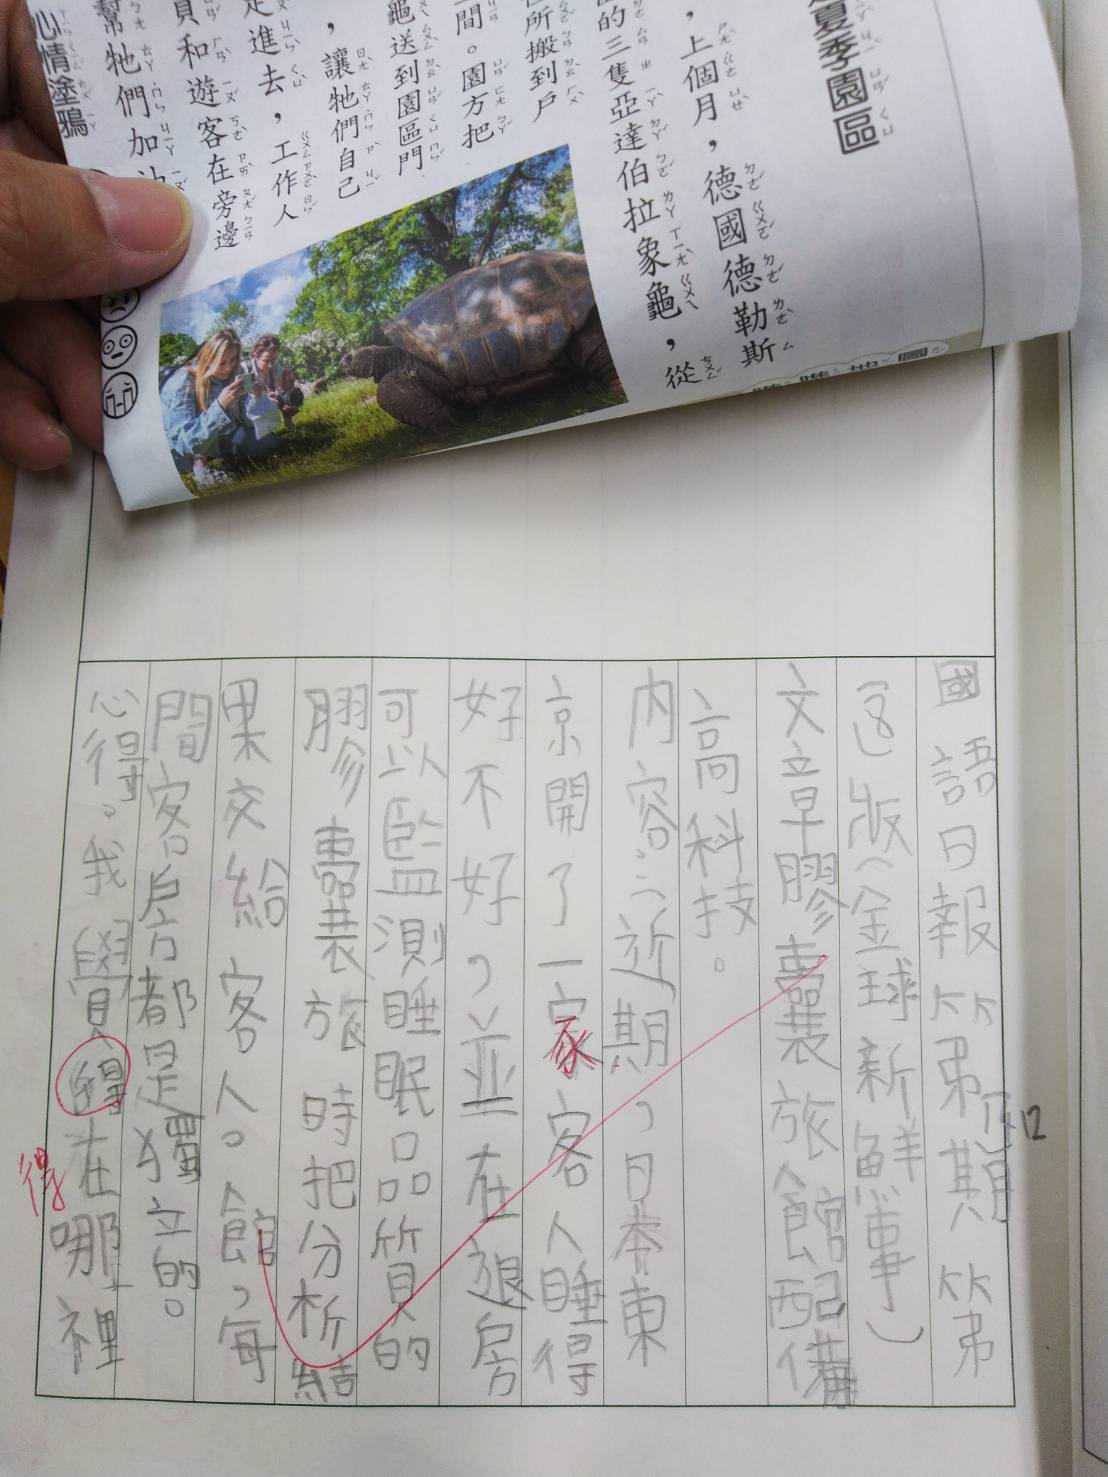 夏季園區
，上個月，德國德勒斯
的三隻亞達伯拉象龜，從
所搬到戶
間。園方把
龜送到園區門
，讓牠們自己
走進去，工作人
員和遊客在旁邊
幫牠們加油
心情塗鴉
國語日報第期第
12
這版(金球新鮮事)
文章膠囊旅館配備
高科技。
內容:近期，日本東
京開了一家客人睡得
好不好，並在退房
可以監測睡眠品質的
膠囊旅時把分析結
果交給客人。館，每
間客戶方都是獨立的。
心得。我覺得在哪裡
得